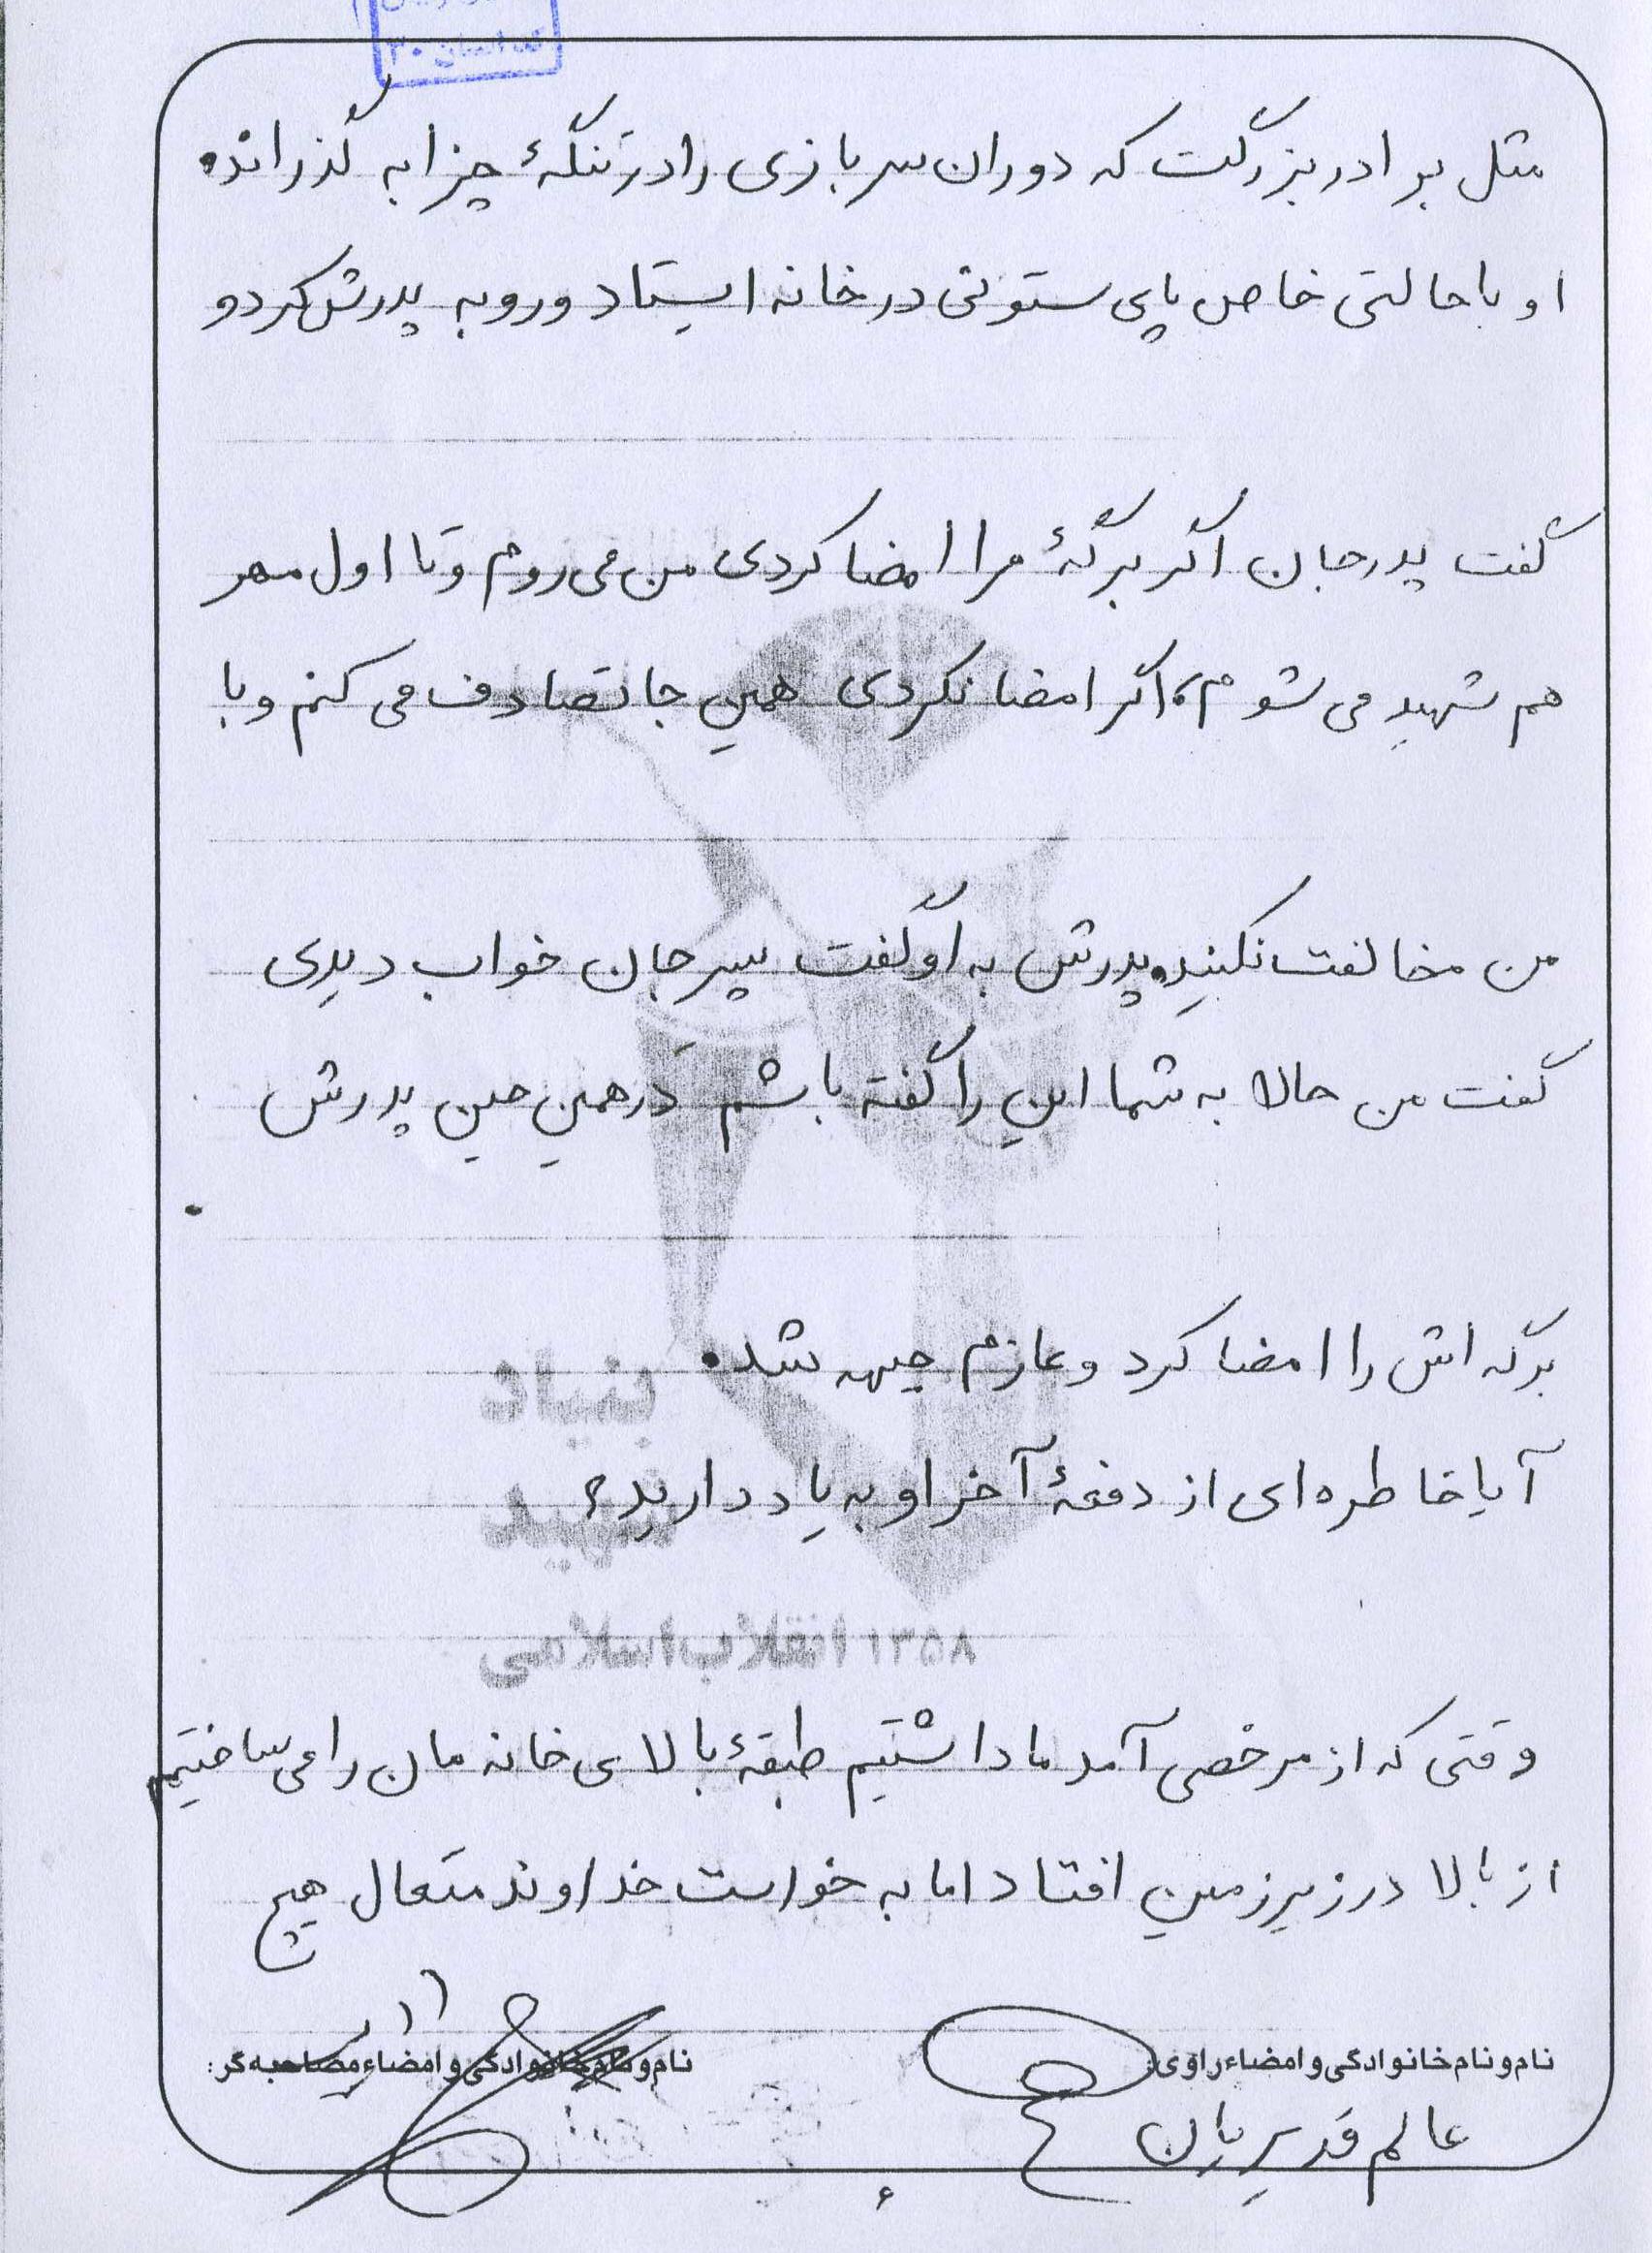 مثل برادر بزرگت که دوران سربازی را در تنگهٔ چزابه گذرانده
او با حالتی خاص پای ستونی در خانه ایستاد و رو به پدرش کرد و
گفت پدر جان اگر برگهٔ مرا امضا کردی من می روم و تا اول مهر
هم شهید می شوم، اگر امضا نکردی همین جا تصادف می کنم و با
من مخالفت نکنید. پدرش به او گفت پسر جان خواب دیدی
گفت من حالا به شما این را گفته باشم در همین حین پدرش
برگه اش را امضا کرد و عازم جبهه شد.
آیا خاطره ای از دفعهٔ آخر او به یاد دارید؟
بنیاد
شهید
۱۳۵۸ انقلاب اسلامی
وقتی که از مرخصی آمد ما داشتیم طبقهٔ بالای خانه مان را می ساختیم
از بالا در زیرزمین افتاد اما به خواست خداوند متعال هیچ
نام و نام خانوادگی و امضاء راوی:
نام و نام خانوادگی و امضاء مصاحبه گر:
عالم قدیریان
۶